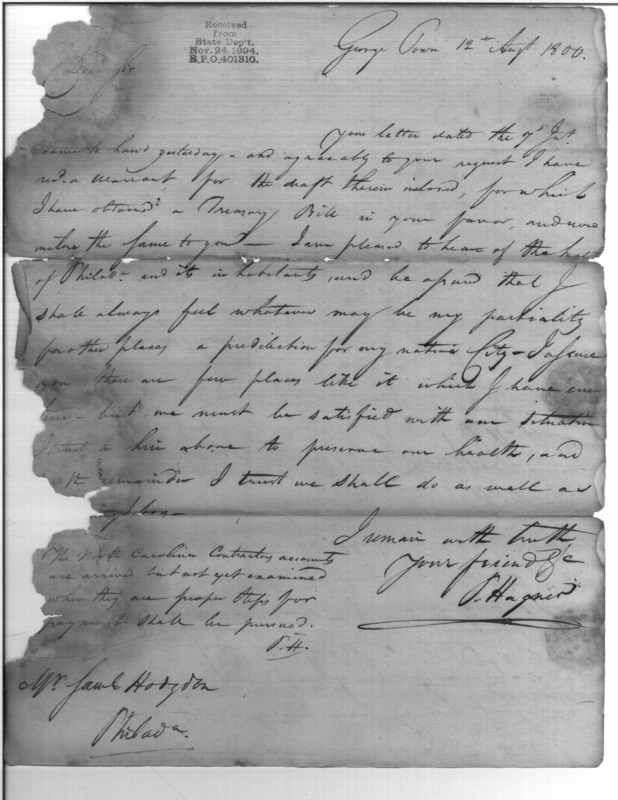 Received
from
State Dep't.
Nov. 24, 1894.
R.P.O. 401310.
George Town 12th Augt 1800.
Dear Sir
your letter dated the 7th Int.
came to hand yesterday - and agreeably to your request I have
red. a warrant for the draft therein inclosed, for which
I have obtained a Treasury Bill in your favor, and now
inclose the same to you - I am pleased to hear of the
of Philada. and its inhabitants, and be assured that I
shall always feel whatever may be my partiality
for other places a predilection for my native City - I assure
you there are few places like it which I have ever
seen - but we must be satisfied with our situation
I trust in him above to preserve our health, and
remainder I trust we shall do as well as
I remain with truth
Your friend &c
P. Hagner
The North Carolina Contractors accounts
are arrived but not yet examined
when they are proper steps for
payment shall be pursued.
P.H.
Mr. Saml Hodgdon
Philada.